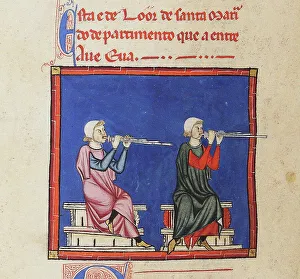 sta e de Loor de santa Mari
do de partimento que a entre
Aue Eua